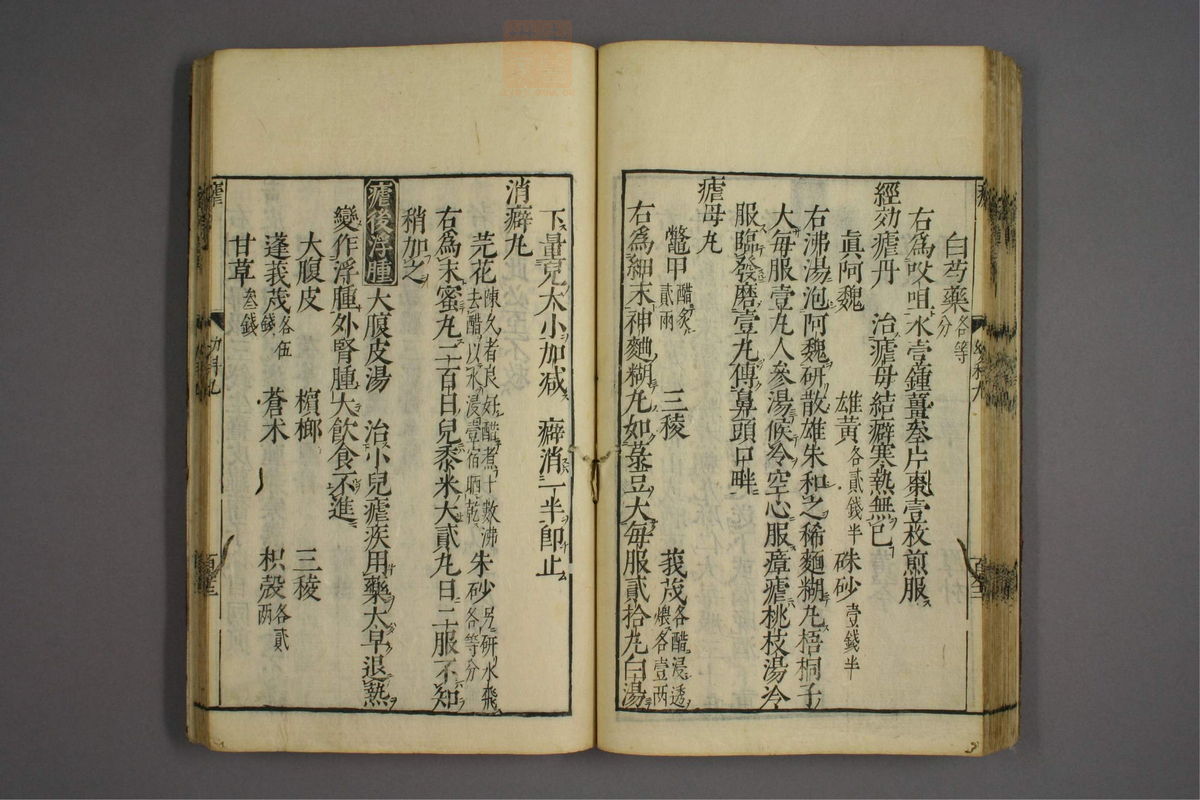 白芍藥各等分
右為㕮咀水壹鍾薑叄片棗壹枚煎服
經効瘧丹　治瘧母結癖寒熱無已
眞阿魏　雄黃各貳錢半　硃砂壹錢半
右沸湯泡阿魏研散雄朱和之稀麵糊丸梧桐子
大每服壹丸人參湯候冷空心服瘴瘧桃枝湯冷
服臨發磨壹丸傅鼻頭口畔
瘧母丸
鱉甲醋炙貳兩　三稜　莪茂各醋浸透煨各壹兩
右為細末神麯糊丸如菉豆大每服貳拾丸白湯
下量兒大小加減　癖消一半即止
消癖丸
芫花陳久者良好醋煮十數沸去醋以水浸壹宿晒乾　朱砂另研水飛各等分
右為末蜜丸二百日兒黍米大貳丸日二服不知
稍加之
瘧後浮腫　大腹皮湯　治小兒瘧疾用藥大早退熱
變作浮腫外腎腫大飲食不進
大腹皮　檳榔　三稜
蓬莪茂各伍錢　蒼术　枳殼各貳兩
甘草叄錢